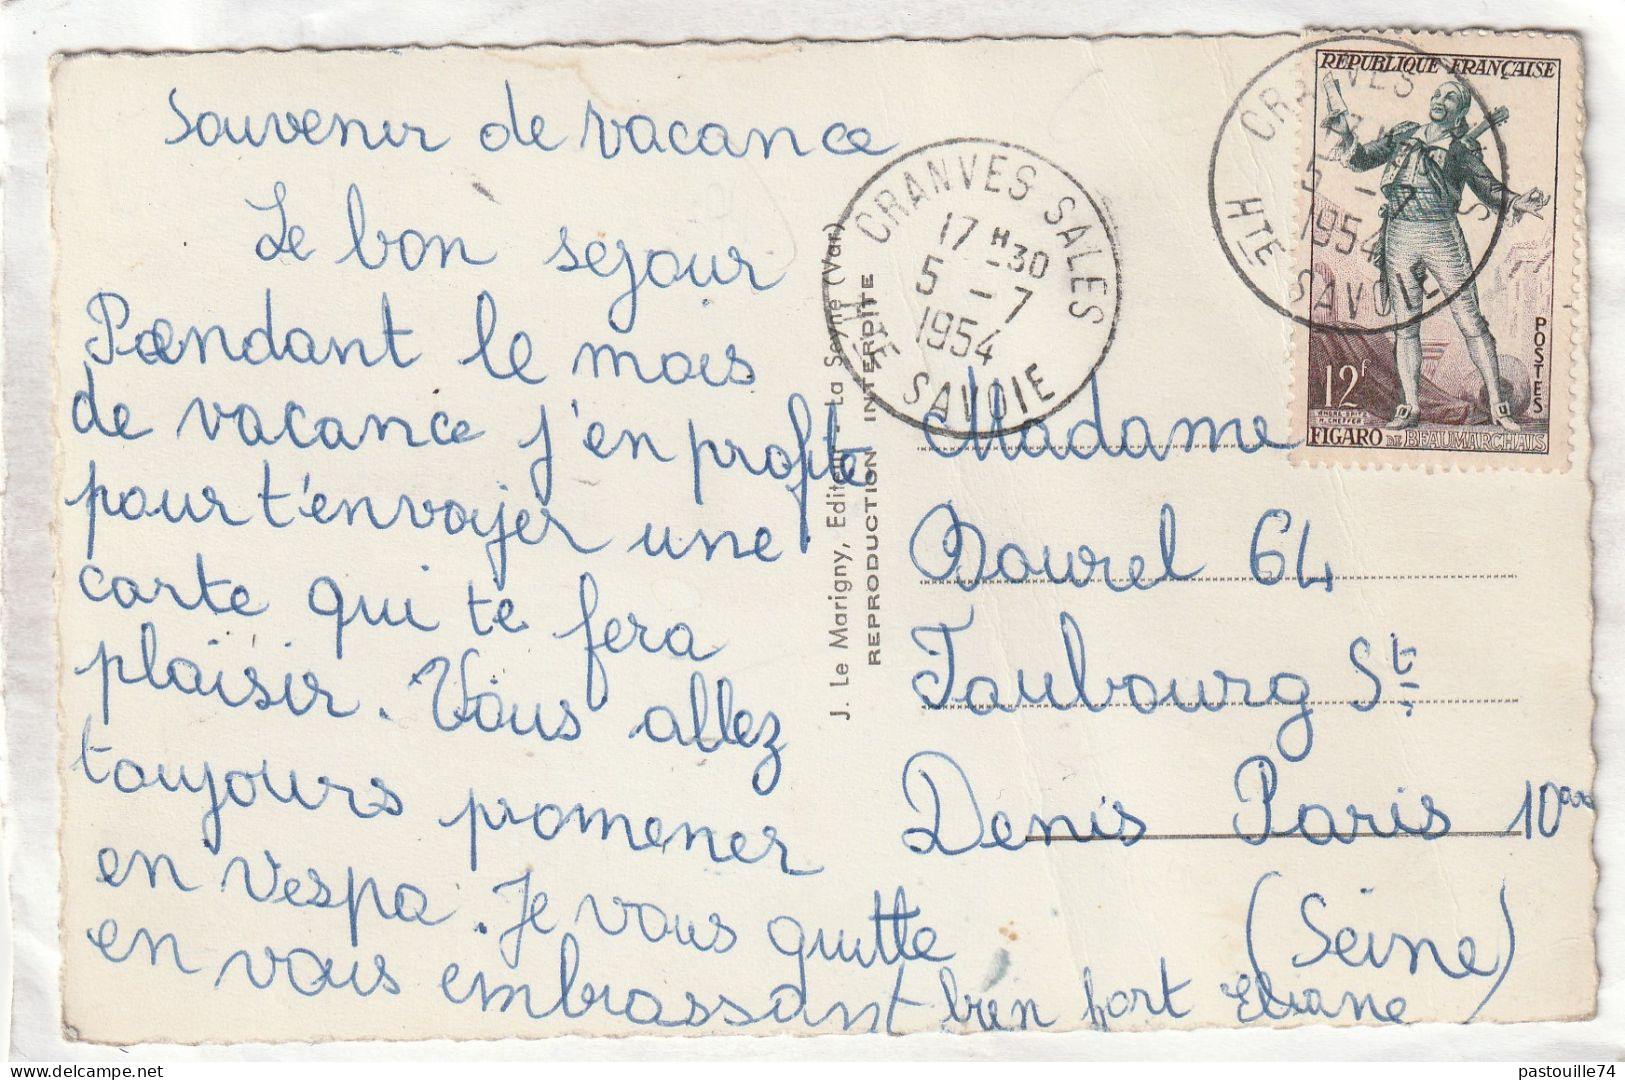 Souvenir de vacance
Le bon sejour
Pendant le mois
de vacance j'en profite
pour t'envoyer une
carte qui te fera
plaisir. Vous allez
toujours promener
en Vespa. Je vous quitte
en vous embrassant bien fort Eliane
J. Le Marigny, Editeur - La Seyne (Var)
REPRODUCTION INTERDITE
CRANVES SALES
17 H 30
5 - 7
1954
HTE SAVOIE
CRANVES SALES
17 H 30
5 - 7
1954
HTE SAVOIE
RÉPUBLIQUE FRANÇAISE
POSTES
12F
ANDRÉ SPITZ
H. CHEFFER
FIGARO DE BEAUMARCHAIS
Madame
Dourel 64
Faubourg St
Denis Paris 10
(Seine)
delcampe.net
pastouille74